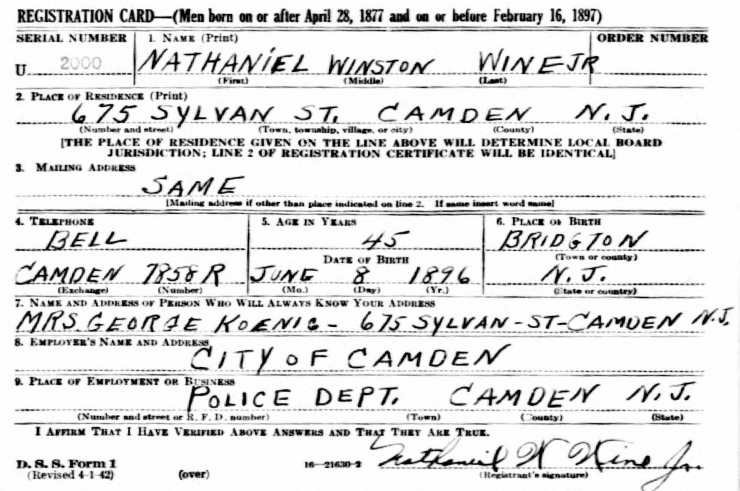 REGISTRATION CARD—(Men born on or after April 28, 1877 and on or before February 16, 1897)
SERIAL NUMBER 1. NAME (Print) ORDER NUMBER
U 2000 NATHANIEL WINSTON WINE JR
(First) (Middle) (Last)
2. PLACE OF RESIDENCE (Print)
675 SYLVAN ST. CAMDEN N.J.
(Number and street) (Town, township, village, or city) (County) (State)
[THE PLACE OF RESIDENCE GIVEN ON THE LINE ABOVE WILL DETERMINE LOCAL BOARD
JURISDICTION; LINE 2 OF REGISTRATION CERTIFICATE WILL BE IDENTICAL]
3. MAILING ADDRESS
SAME
[Mailing address if other than place indicated on line 2. If same insert word same]
4. TELEPHONE 5. AGE IN YEARS 6. PLACE OF BIRTH
BELL 45 BRIDGTON
DATE OF BIRTH (Town or county)
CAMDEN 7858R JUNE 8 1896 N.J.
(Exchange) (Number) (Mo.) (Day) (Yr.) (State or country)
7. NAME AND ADDRESS OF PERSON WHO WILL ALWAYS KNOW YOUR ADDRESS
MRS. GEORGE KOENIG - 675 SYLVAN-ST-CAMDEN N.J.
8. EMPLOYER'S NAME AND ADDRESS
CITY OF CAMDEN
9. PLACE OF EMPLOYMENT OR BUSINESS
POLICE DEPT. CAMDEN N.J.
(Number and street or R. F. D. number) (Town) (County) (State)
I AFFIRM THAT I HAVE VERIFIED ABOVE ANSWERS AND THAT THEY ARE TRUE.
D. S. S. Form 1 16—21630-2 Nathaniel W Wine Jr.
(Revised 4-1-42) (over) (Registrant's signature)